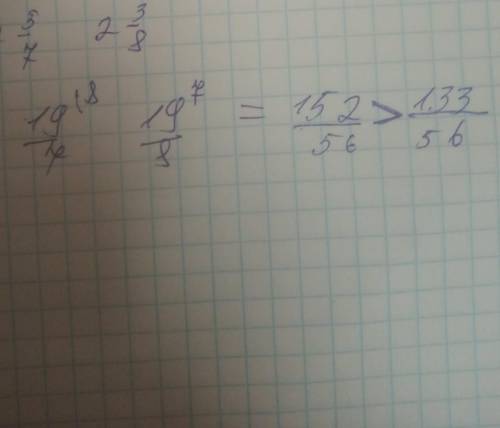 3/7 2 3/8
19/7 ⁽⁸ 19/8 ⁷ = 152/56 > 133/56